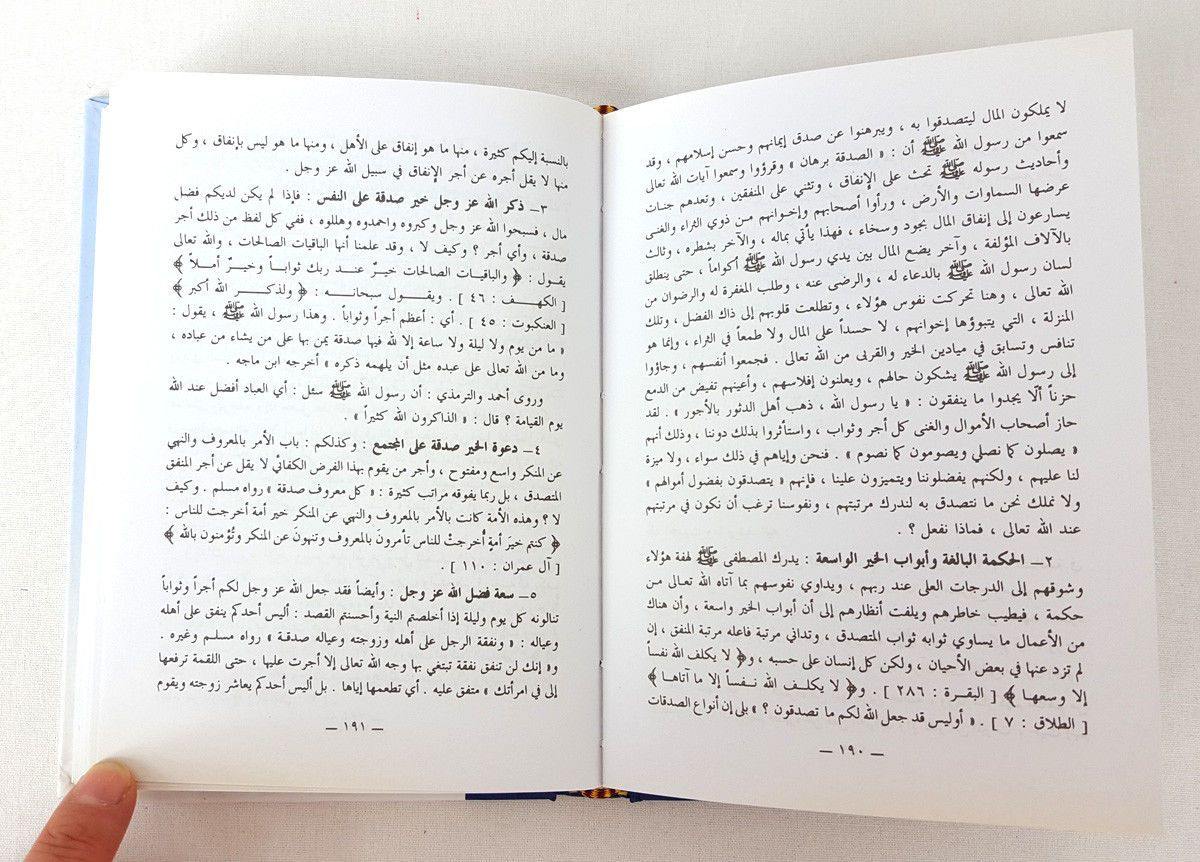 لا يملكون المال ليتصدقوا به ، ويبرهنوا عن صدق إيمانهم وحسن إسلامهم ، وقد
سمعوا من رسول الله ﷺ أن : « الصدقة برهان » وقرؤوا وسمعوا آيات الله تعالى
وأحاديث رسوله ﷺ تحث على الإنفاق ، وتثني على المنفقين ، وتعدهم جنات
عرضها السماوات والأرض ، ورأوا أصحابهم وإخوانهم من ذوي الثراء والغنى
يسارعون إلى إنفاق المال بجود وسخاء ، فهذا يأتي بماله ، والآخر بشطره ، وثالث
بالآلاف المؤلفة ، وآخر يضع المال بين يدي رسول الله ﷺ أكواماً ، حتى ينطلق
لسان رسول الله ﷺ بالدعاء له ، والرضى عنه ، وطلب المغفرة له والرضوان من
الله تعالى ، وهنا تحركت نفوس هؤلاء ، وتطلعت قلوبهم إلى ذاك الفضل ، وتلك
المنزلة ، التي يتبوؤها إخوانهم ، لا حسداً على المال ولا طمعاً في الثراء ، وإنما هو
تنافس وتسابق في ميادين الخير والقربى من الله تعالى . فجمعوا أنفسهم ، وجاؤوا
إلى رسول الله ﷺ يشكون حالهم ، ويعلنون إفلاسهم ، وأعينهم تفيض من الدمع
حزناً ألّا يجدوا ما ينفقون : « يا رسول الله ، ذهب أهل الدثور بالأجور » . لقد
حاز أصحاب الأموال والغنى كل أجر وثواب ، واستأثروا بذلك دوننا ، وذلك أنهم
« يصلون كما نصلي ويصومون كما نصوم » . فنحن وإياهم في ذلك سواء ، ولا ميزة
لنا عليهم ، ولكنهم يفضلوننا ويتميزون علينا ، فإنهم « يتصدقون بفضول أموالهم »
ولا نملك نحن ما نتصدق به لندرك مرتبتهم ، ونفوسنا ترغب أن نكون في مرتبتهم
عند الله تعالى ، فماذا نفعل ؟
٢ــ الحكمة البالغة وأبواب الخير الواسعة : يدرك المصطفى ﷺ لهفة هؤلاء
وشوقهم إلى الدرجات العلى عند ربهم ، ويداوي نفوسهم بما آتاه الله تعالى من
حكمة ، فيطيب خاطرهم ويلفت أنظارهم إلى أن أبواب الخير واسعة ، وأن هناك
من الأعمال ما يساوي ثوابه ثواب المتصدق ، وتداني مرتبة فاعله مرتبة المنفق ، إن
لم تزد عنها في بعض الأحيان ، ولكن كل إنسان على حسبه ، و﴿ لا يكلف الله نفساً
إلا وسعها ﴾ [ البقرة : ٢٨٦ ] . و﴿ لا يكلف الله نفساً إلا ما آتاها ﴾
[ الطلاق : ٧ ] . « أوليس قد جعل الله لكم ما تصدقون ؟ » بلى إن أنواع الصدقات
ــ ١٩٠ ــ
بالنسبة إليكم كثيرة ، منها ما هو إنفاق على الأهل ، ومنها ما هو ليس بإنفاق ، وكل
منها لا يقل أجره عن أجر الإنفاق في سبيل الله عز وجل .
٣ــ ذكر الله عز وجل خير صدقة على النفس : فإذا لم يكن لديكم فضل
مال ، فسبحوا الله عز وجل وكبروه واحمدوه وهللوه ، ففي كل لفظ من ذلك أجر
صدقة ، وأي أجر ؟ وكيف لا ، وقد علمنا أنها الباقيات الصالحات ، والله تعالى
يقول : ﴿ والباقيات الصالحات خيرٌ عند ربك ثواباً وخيرٌ أملاً ﴾
[ الكهف : ٤٦ ] . ويقول سبحانه : ﴿ ولذكر الله أكبر ﴾
[ العنكبوت : ٤٥ ] . أي : أعظم أجراً وثواباً . وهذا رسول الله ﷺ ، يقول :
« ما من يوم ولا ليلة ولا ساعة إلا لله فيها صدقة يمن بها على من يشاء من عباده ،
وما من الله تعالى على عبده مثل أن يلهمه ذكره » أخرجه ابن ماجه .
وروى أحمد والترمذي : أن رسول الله ﷺ سئل : أي العباد أفضل عند الله
يوم القيامة ؟ قال : « الذاكرون الله كثيراً » .
٤ــ دعوة الخير صدقة على المجتمع : وكذلكم : باب الأمر بالمعروف والنهي
عن المنكر واسع ومفتوح ، وأجر من يقوم بهذا الفرض الكفائي لا يقل عن أجر المنفق
المتصدق ، بل ربما يفوقه مراتب كثيرة : « كل معروف صدقة » رواه مسلم . وكيف
لا ؟ وهذه الأمة كانت بالأمر بالمعروف والنهي عن المنكر خير أمة أخرجت للناس :
﴿ كنتم خيرَ أمةٍ أُخرجتْ للناس تأمرون بالمعروف وتنهونَ عن المنكر وتُؤمنون بالله ﴾
[ آل عمران : ١١٠ ] .
٥ــ سعة فضل الله عز وجل : وأيضاً فقد جعل الله عز وجل لكم أجراً وثواباً
تنالونه كل يوم وليلة إذا أخلصتم النية وأحسنتم القصد : أليس أحدكم ينفق على أهله
وعياله : « ونفقة الرجل على أهله وزوجته وعياله صدقة » رواه مسلم وغيره .
و« إنك لن تنفق نفقة تبتغي بها وجه الله تعالى إلا أجرت عليها ، حتى اللقمة ترفعها
إلى في امرأتك » متفق عليه . أي تطعمها إياها . بل أليس أحدكم يعاشر زوجته ويقوم
ــ ١٩١ ــ